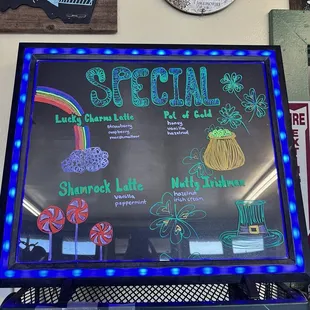 SPECIAL
Lucky Charms Latte
strawberry
raspberry
marshmallow
Pot of Gold
honey
vanilla
hazelnut
Shamrock Latte
vanilla
peppermint
Nutty Irishman
hazelnut
irish cream